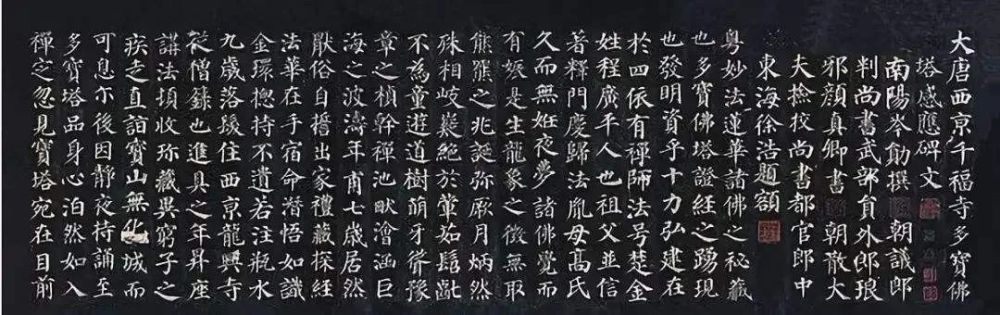 大唐西京千福寺多寶佛
塔感應碑文
南陽岑勛撰 朝議郎
判尚書武部員外郎琅
邪顏真卿書 朝散大
夫撿挍尚書都官郎中
東海徐浩題額
粵妙法蓮華諸佛之秘藏
也多寶佛塔證經之踴現
也發明資乎十力弘建在
於四依有禪師法号楚金
姓程廣平人也祖父並信
著釋門慶歸法胤母高氏
久而無姙夜夢諸佛覺而
有娠是生龍象之徵無取
熊羆之兆誕弥厥月炳然
殊相岐嶷絕於葷茹髫齔
不為童遊道樹萌牙聳豫
章之楨幹禪池畎澮涵巨
海之波濤年甫七歲居然
厭俗自誓出家禮藏探經
法華在手宿命潛悟如識
金環揔持不遺若注瓶水
九歲落髮住西京龍興寺
從僧籙也進具之年昇座
講法頓收珎藏異窮子之
疾走直詣寶山無化城而
可息尒後因靜夜持誦至
多寶塔品身心泊然如入
禪定忽見寶塔宛在目前